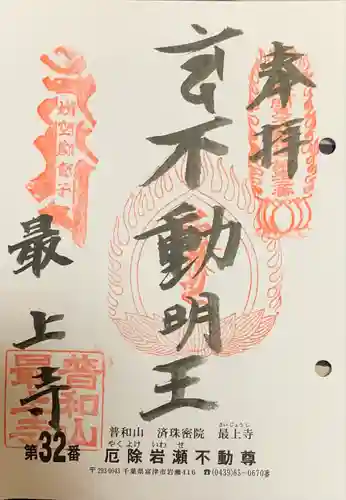 奉拝
不動明王
最上寺
普和山
最上寺
第32番
普和山 済珠密院 最上寺
さいじょうじ
やくよけ いわせ
厄除岩瀬不動尊
〒293-0043 千葉県富津市岩瀬416 ☎(0439)65-0670番